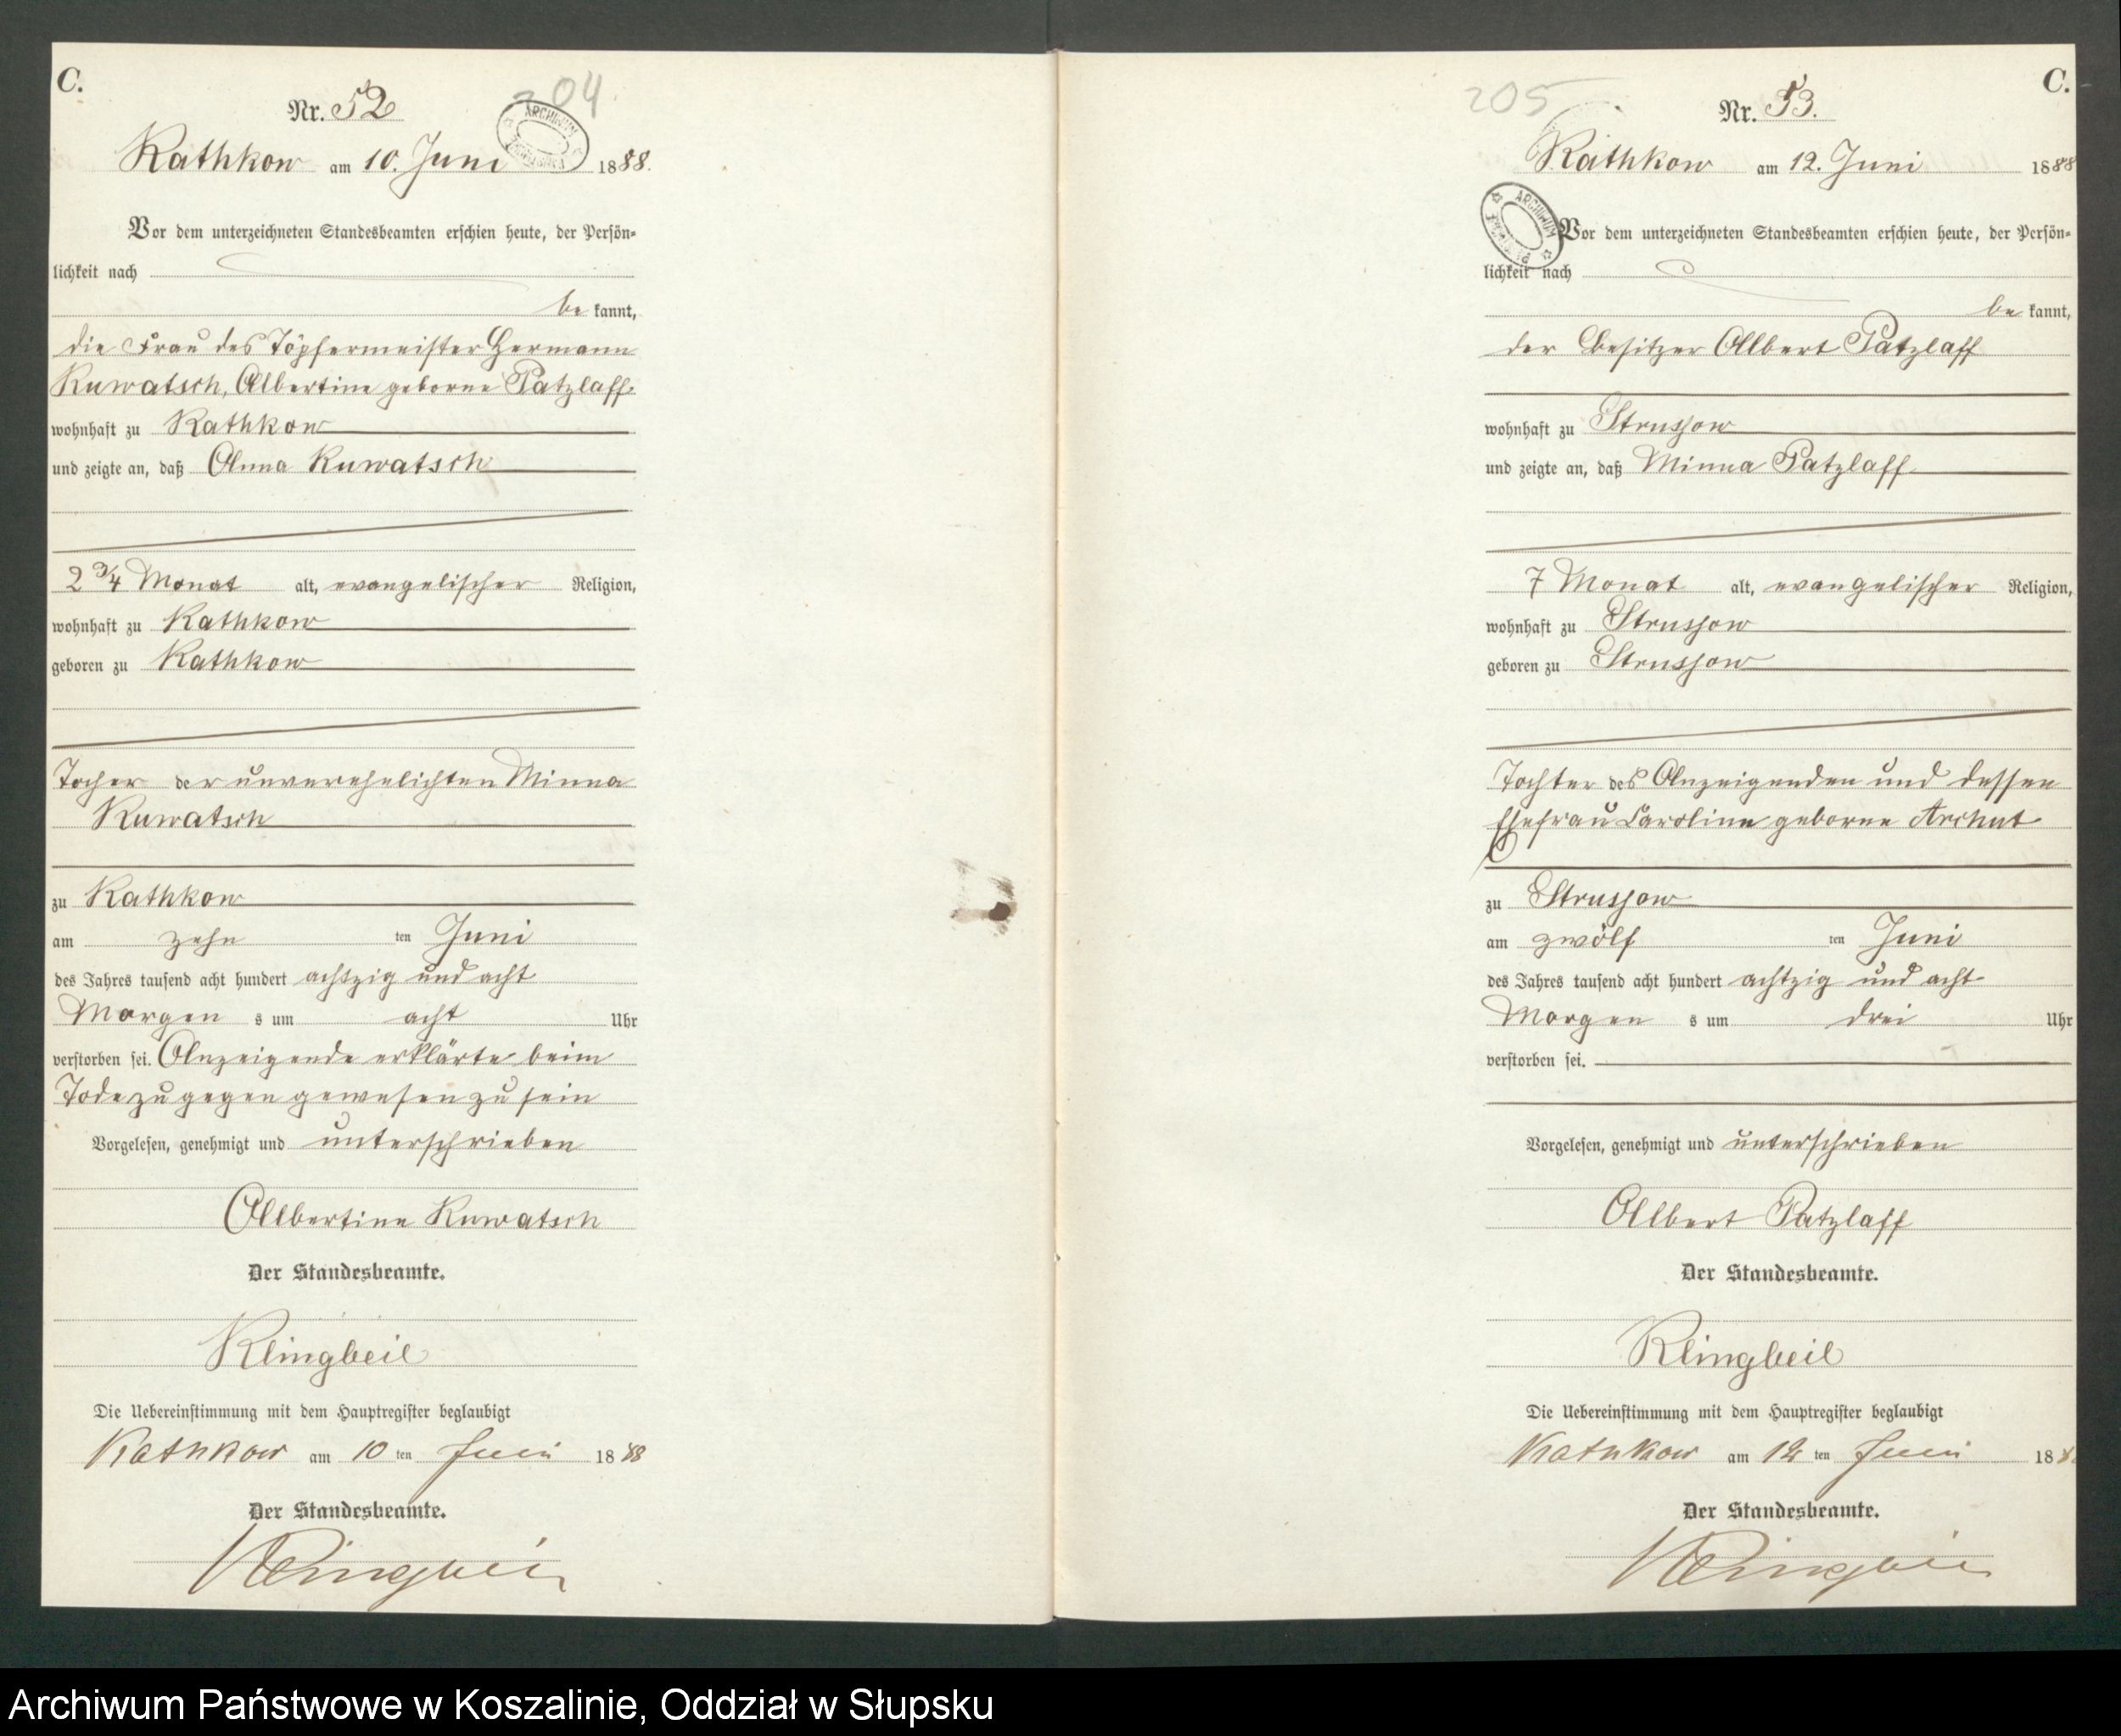 C.
204
Nr. 52
ARCHIWUM
Rathkow am 10. Juni 1888.
Vor dem unterzeichneten Standesbeamten erschien heute, der Persön-
lichkeit nach
be kannt,
die Frau des Töpfermeister Hermann
Kuwatsch, Albertine geborne Patzlaff
wohnhaft zu Rathkow
und zeigte an, daß Anna Kuwatsch
2 3/4 Monat alt, evangelischer Religion,
wohnhaft zu Rathkow
geboren zu Rathkow
Tocher der unverehelichten Minna
Kuwatsch
zu Rathkow
am zehn ten Juni
des Jahres tausend acht hundert achtzig und acht
Morgen s um acht Uhr
verstorben sei. Anzeigende erklärte beim
Tode zu gegen gewesen zu sein
Vorgelesen, genehmigt und unterschrieben
Albertine Kuwatsch
Der Standesbeamte.
Klingbeil
Die Uebereinstimmung mit dem Hauptregister beglaubigt
Rathkow am 10 ten Juni 1888
Der Standesbeamte.
Klingbeil
C.
205
Nr. 53.
Rathkow am 12. Juni 1888
ARCHIWUM
Vor dem unterzeichneten Standesbeamten erschien heute, der Persön-
lichkeit nach
be kannt,
der Besitzer Albert Patzlaff
wohnhaft zu Strussow
und zeigte an, daß Minna Patzlaff
7 Monat alt, evangelischer Religion,
wohnhaft zu Strussow
geboren zu Strussow
Tochter des Anzeigenden und dessen
Ehefrau Caroline geborne Archut
zu Strussow
am zwölf ten Juni
des Jahres tausend acht hundert achtzig und acht
Morgen s um drei Uhr
verstorben sei.
Vorgelesen, genehmigt und unterschrieben
Albert Patzlaff
Der Standesbeamte.
Klingbeil
Die Uebereinstimmung mit dem Hauptregister beglaubigt
Rathkow am 12 ten Juni 188
Der Standesbeamte.
Klingbeil
Archiwum Państwowe w Koszalinie, Oddział w Słupsku